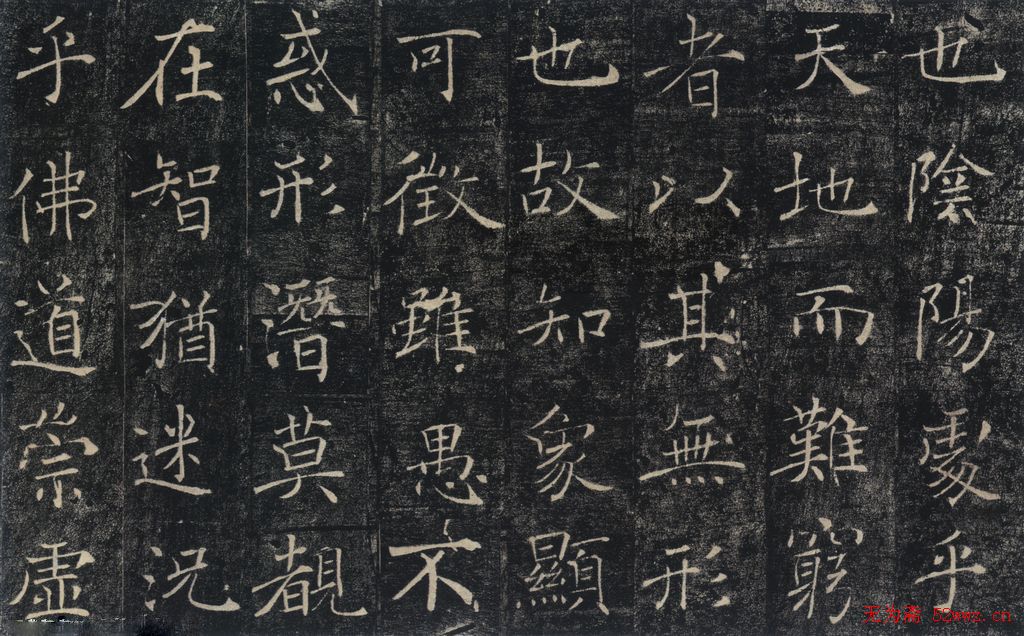 也陰陽處乎
天地而難窮
者以其無形
也故知象顯
可徵雖愚不
惑形潛莫覩
在智猶迷況
乎佛道崇虛
52wwz.cn